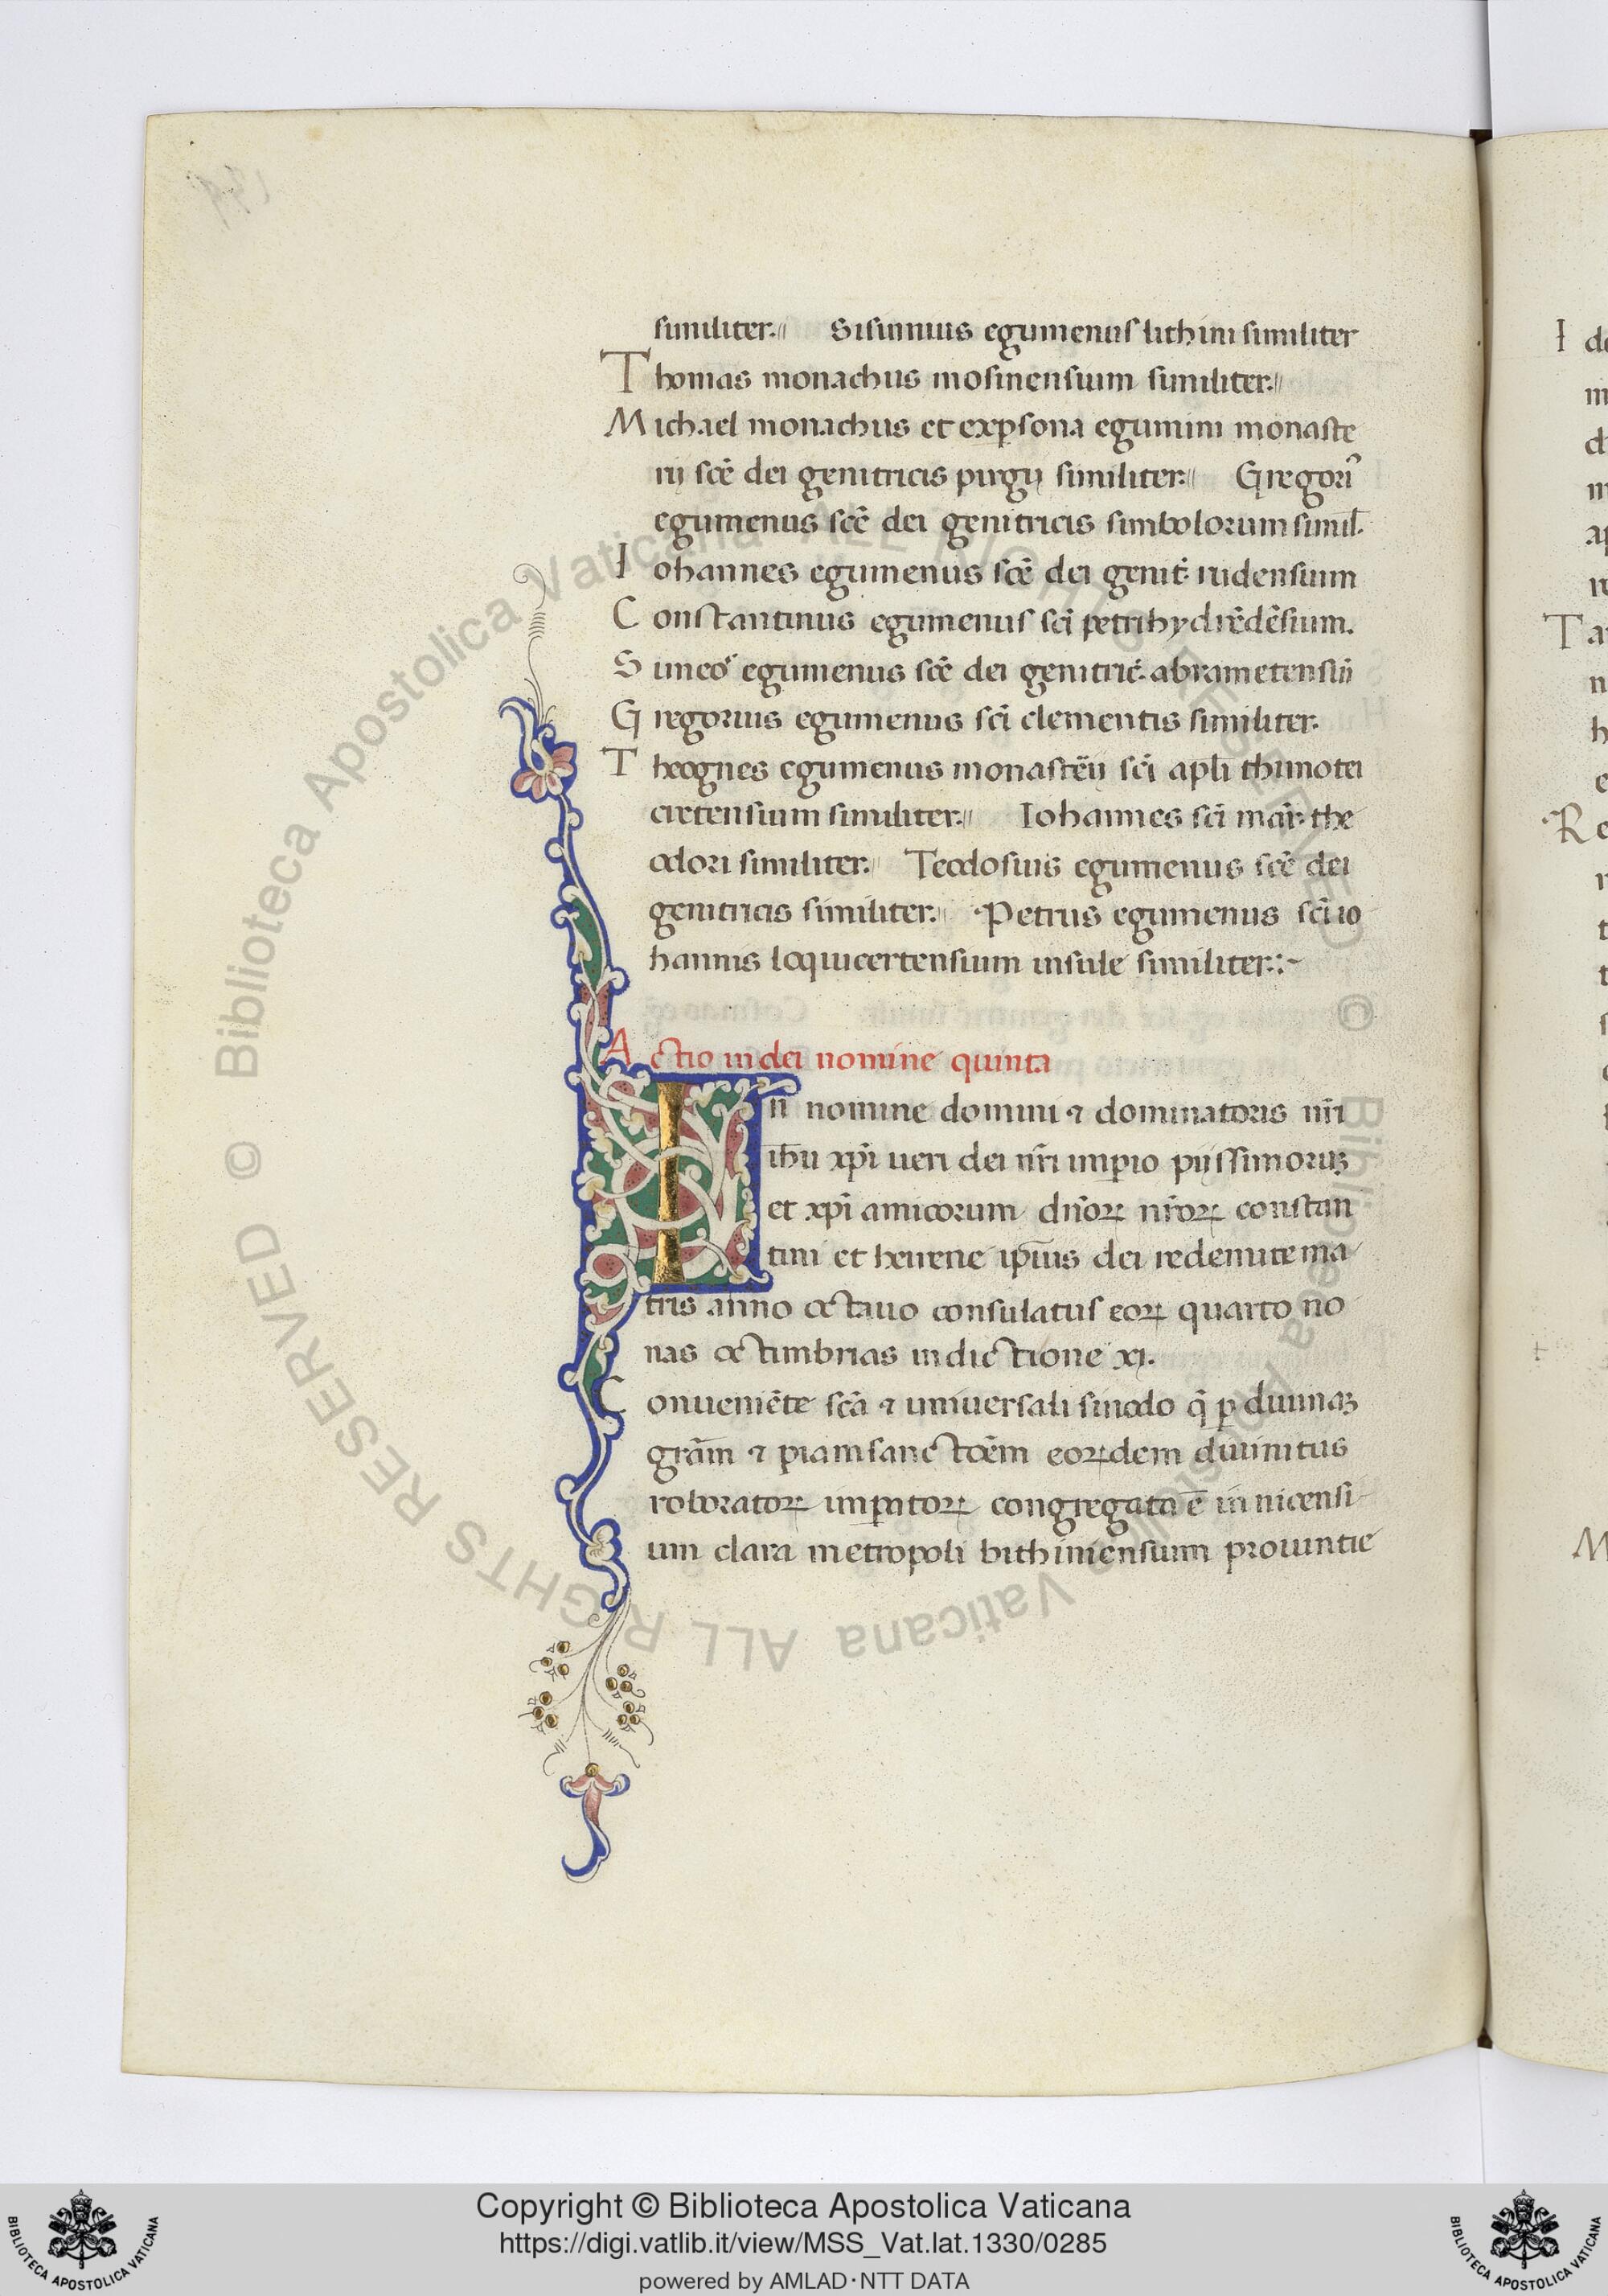 similiter. Sisinnius egumenus lithini similiter
Thomas monachus mosinensium similiter.
Michael monachus et exp̱sona egumini monaste
rij scē dei genitricis pirgij similiter. Gregoriꝰ
egumenus scē dei genitricis simbolorum simil̄.
Iohannes egumenus scē dei genit̄. rudensium
Constantinus egumenus sc̄i petri hydrēdēsium.
Simeō egumenus scē dei genitric̄. abrametensiū
Gregorius egumenus sc̄i clementis similiter.
Theognes egumenus monastērij sc̄i apl̄i thimotei
cretensium similiter. Iohannes sc̄i mār. the
odori similiter. Teodosius egumenus scē dei
genitricis similiter. Petrus egumenus sc̄i io
hannis loquicertensium insule similiter:~
Actio in dei nomine quinta
In nomine domini ⁊ dominatoris nr̄i
ih̄u xp̄i ueri dei nr̄i imꝑio pijssimoruꝫ
et xp̄i amicorum dn̄oꝝ nr̄oꝝ constan
tini et heirene ip̄ius dei redemite ma
tris anno octauo consulatus eoꝝ quarto no
nas octimbrias indictione xi.
Conueniēte scā ⁊ uniuersali sinodo q̄ ꝑ diuinaꝫ
grām ⁊ piam sanctōēm eoꝝdem diuinitus
roboratoꝝ imꝑatoꝝ congregata ē in nicensi
um clara metropoli bithiniensium prouintie
Copyright © Biblioteca Apostolica Vaticana
https://digi.vatlib.it/view/MSS_Vat.lat.1330/0285
powered by AMLAD·NTT DATA
© Biblioteca Apostolica Vaticana ALL RIGHTS RESERVED
© Biblioteca Apostolica Vaticana ALL RIGHTS RESERVED
BIBLIOTECA APOSTOLICA VATICANA
BIBLIOTECA APOSTOLICA VATICANA